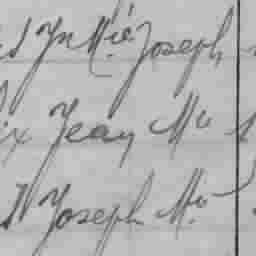 Jn Mie Joseph
ix Jean Mie
Joseph Mie